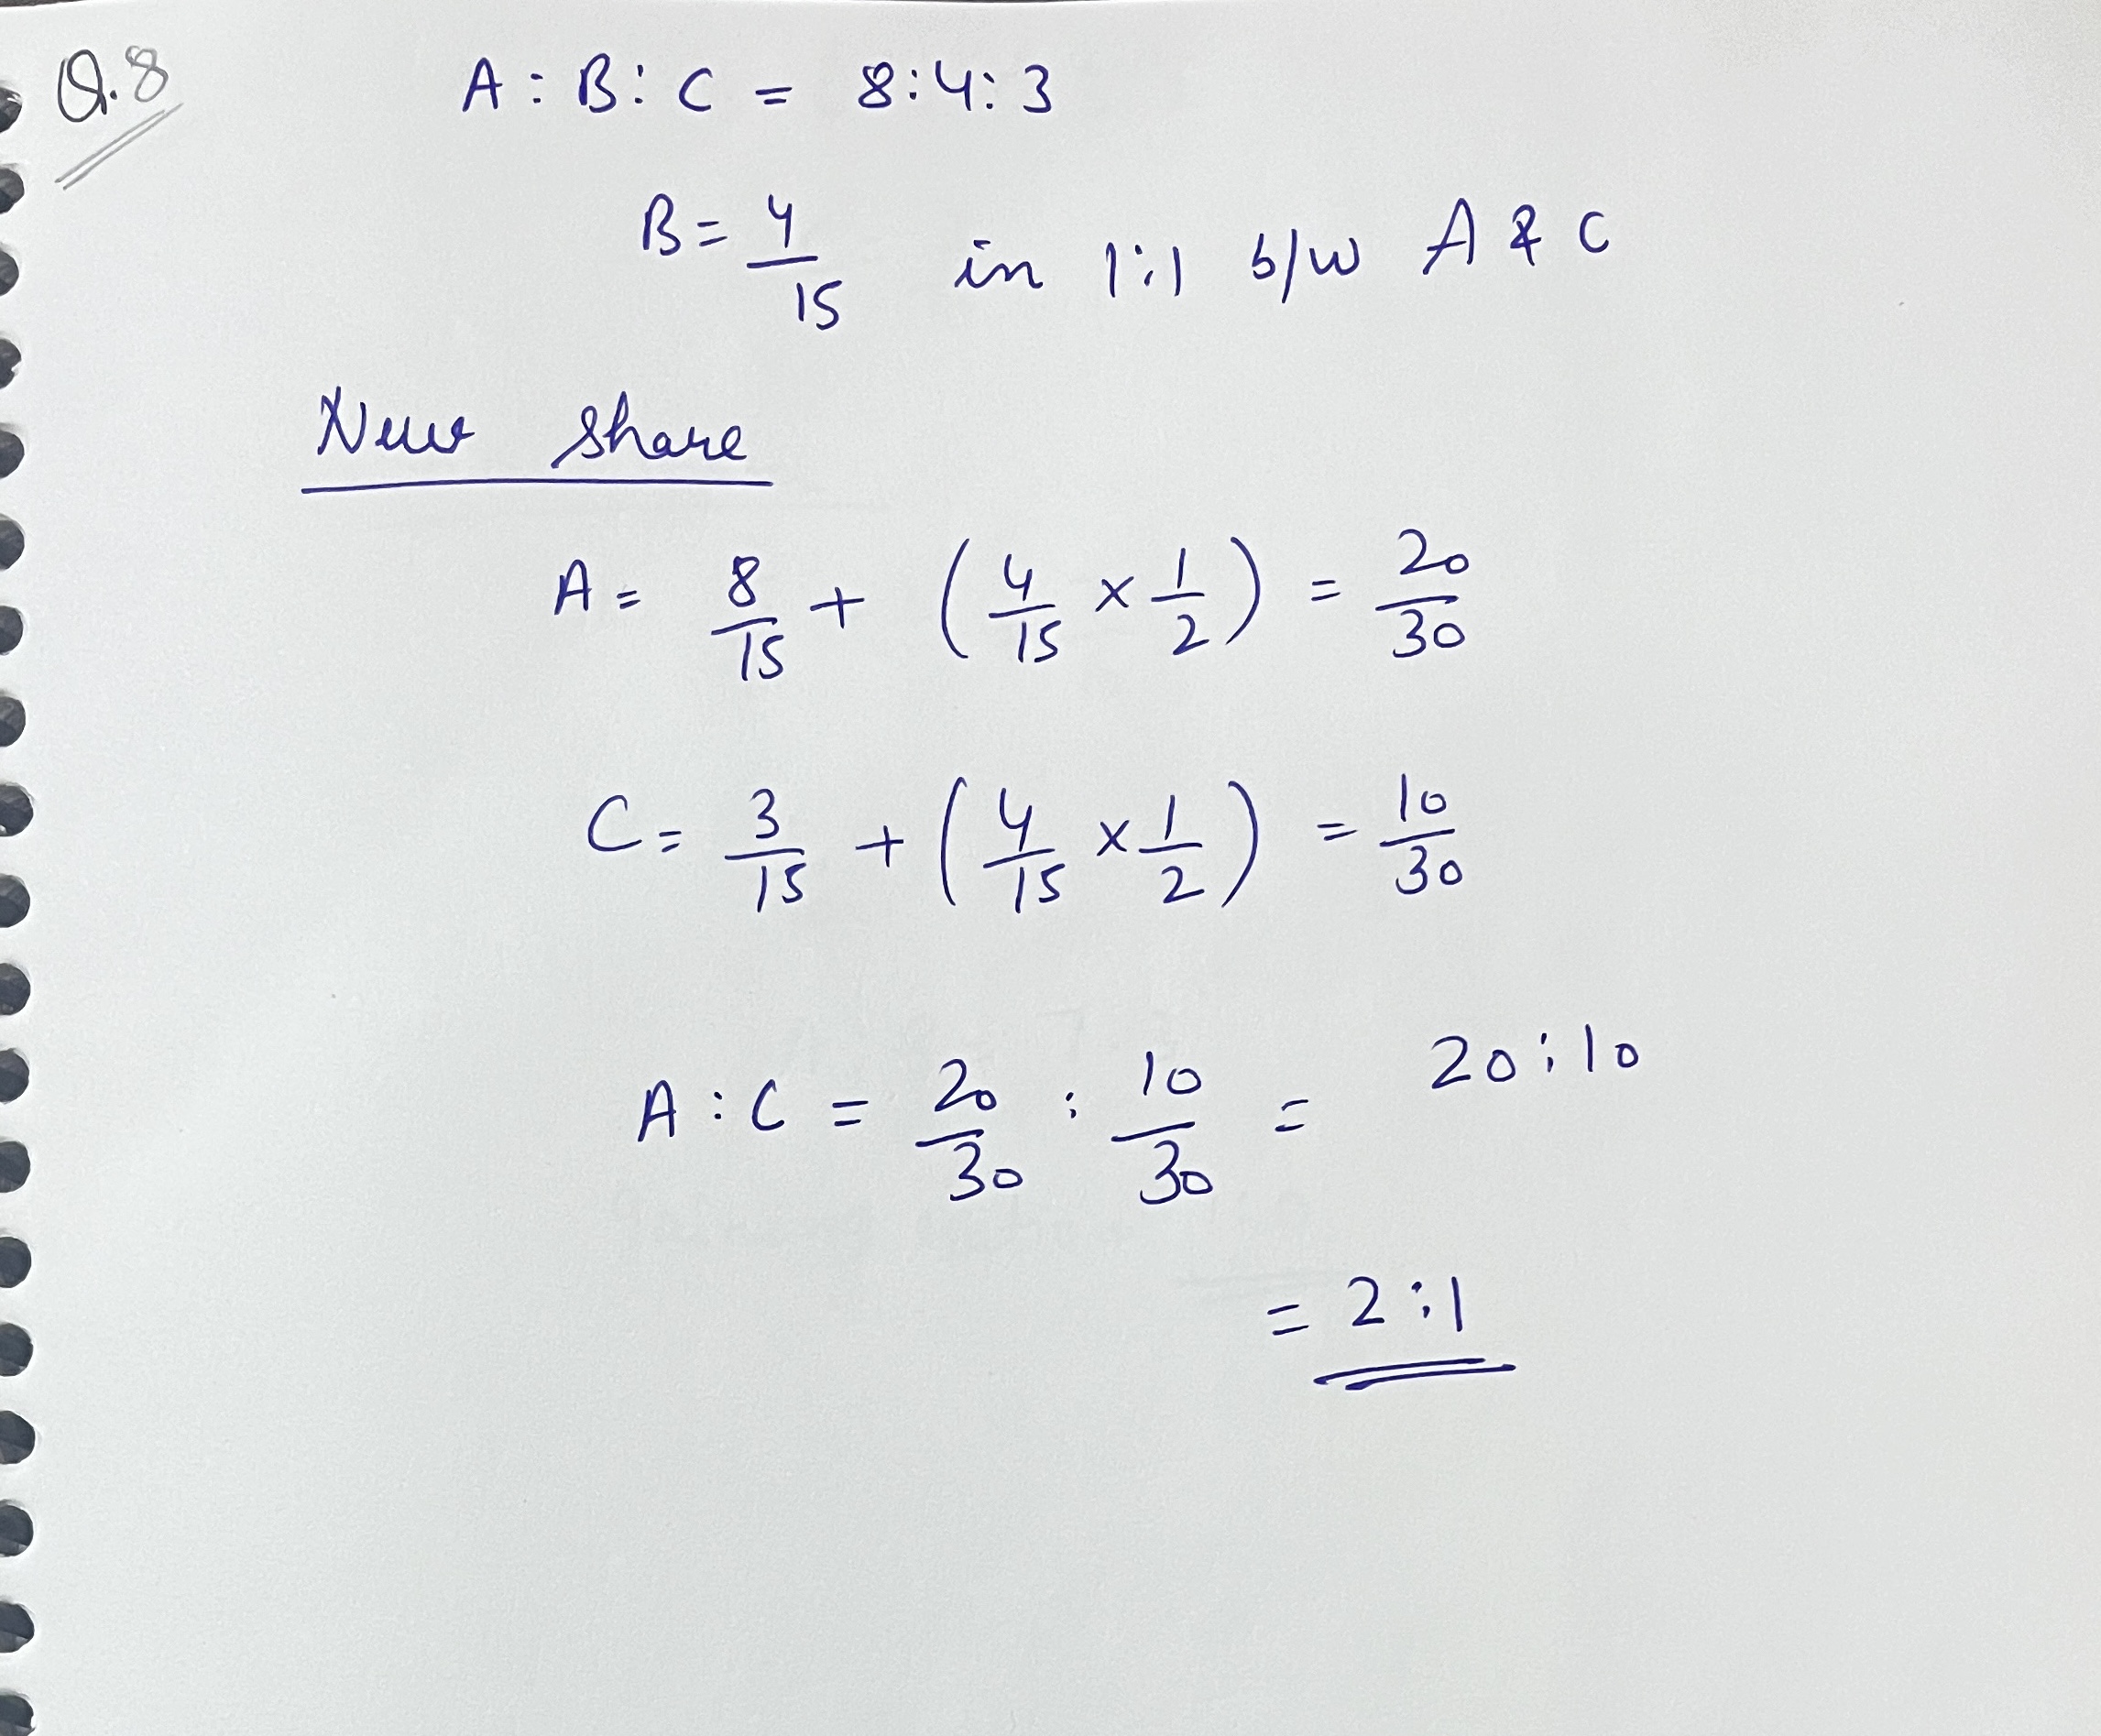 Q.8
A : B : C = 8:4:3
B = 4/15 in 1:1 b/w A & C
New share
A = 8/15 + (4/15 × 1/2) = 20/30
C = 3/15 + (4/15 × 1/2) = 10/30
A : C = 20/30 : 10/30 = 20:10
= 2:1